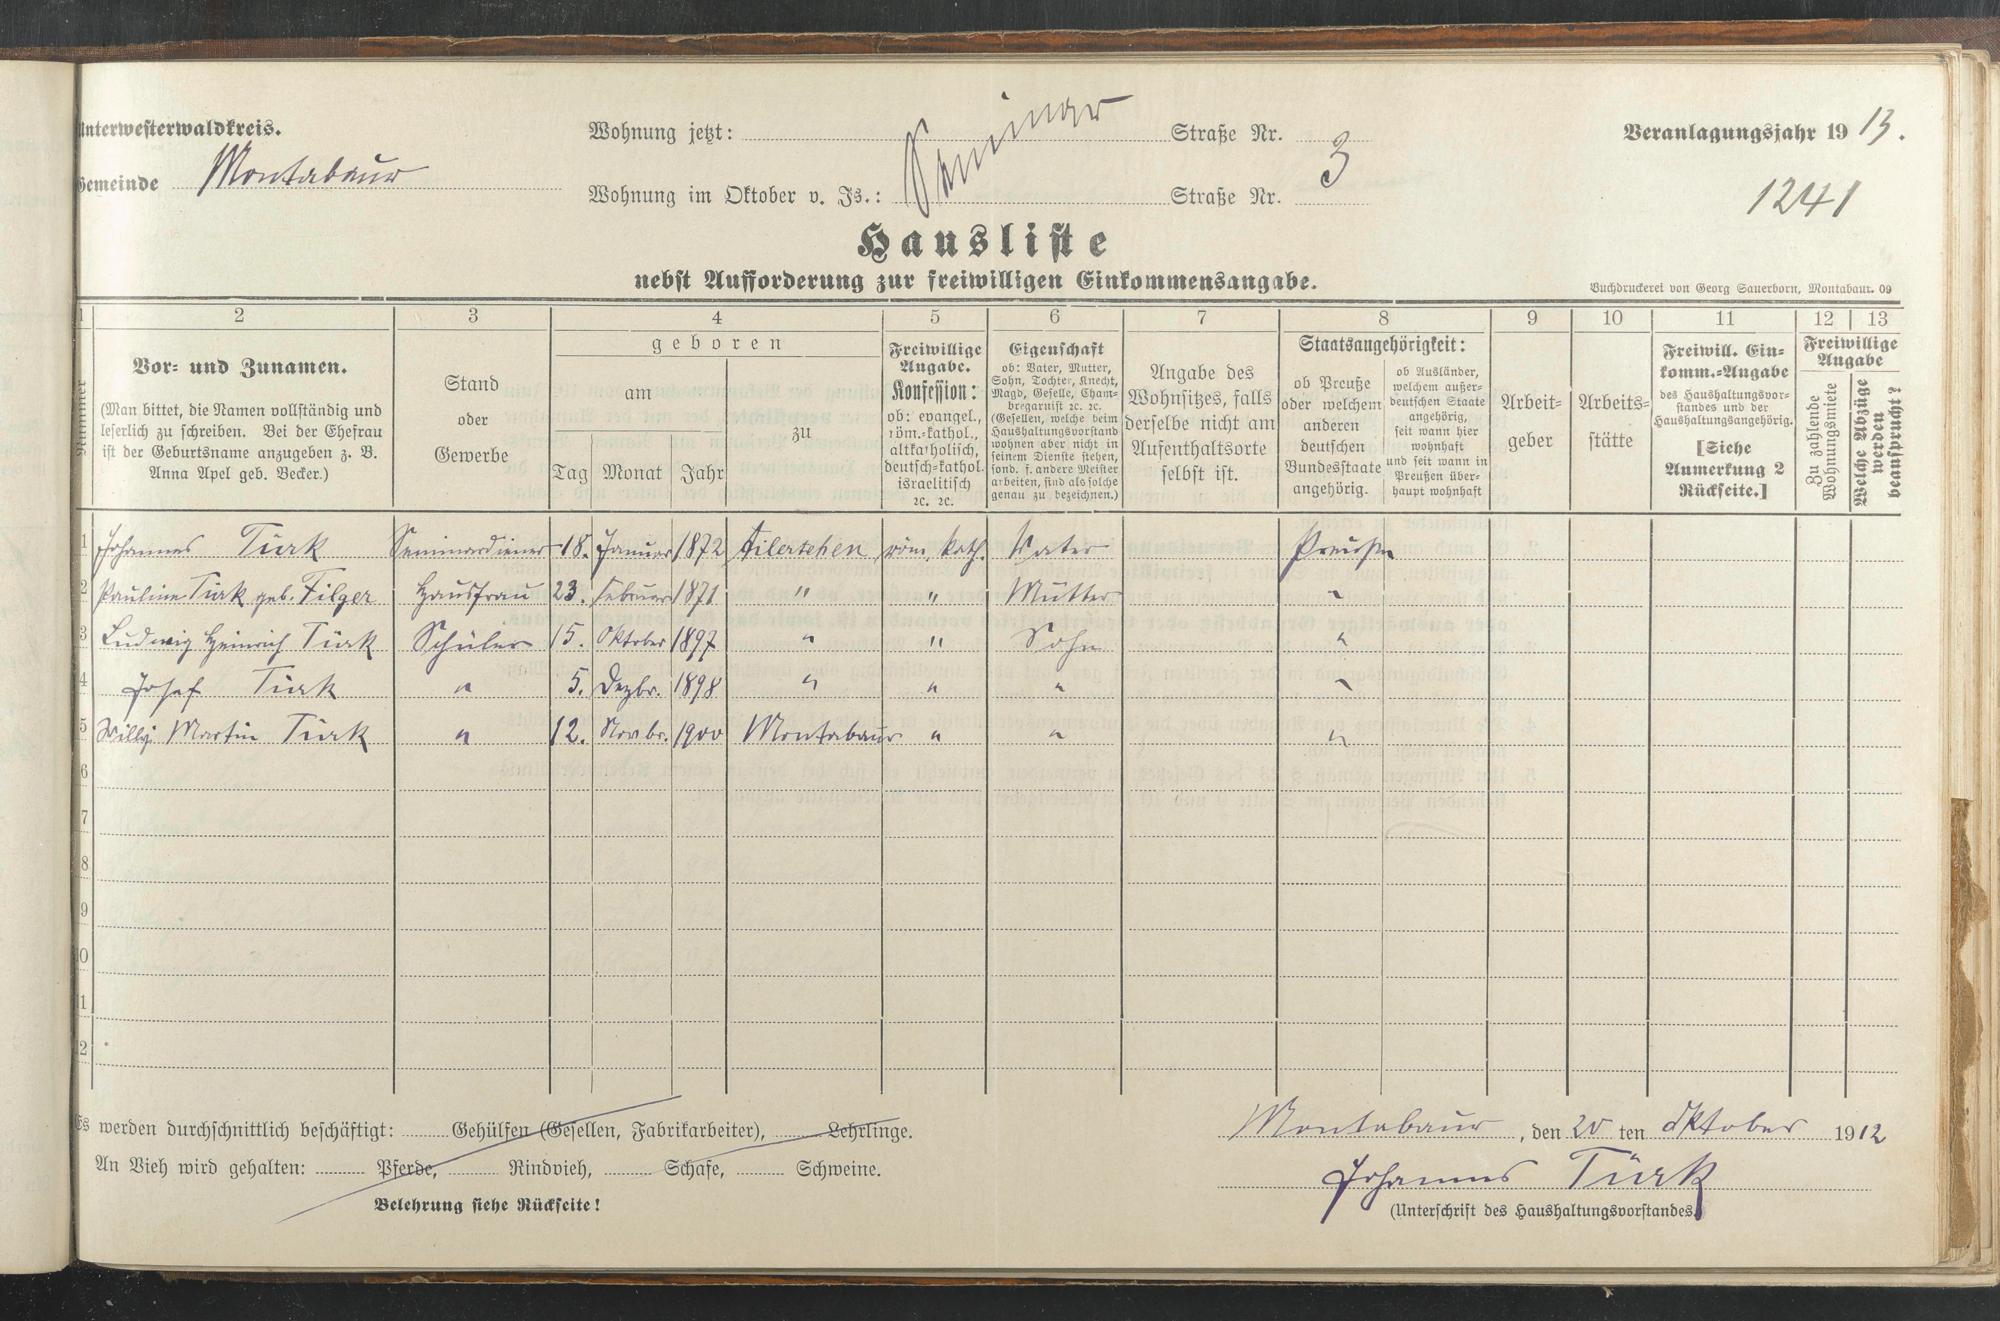 Unterwesterwaldkreis.
Gemeinde Montabaur
Wohnung jetzt: Seminar Straße Nr. 3
Wohnung im Oktober v. Js.: Straße Nr.
Veranlagungsjahr 1913.
1241
Hausliste
nebst Aufforderung zur freiwilligen Einkommensangabe.
Buchdruckerei von Georg Sauerborn, Montabaur. 09
1 2 3 4 5 6 7 8 9 10 11 12 13
Nummer
Vor- und Zunamen.
(Man bittet, die Namen vollständig und
leserlich zu schreiben. Bei der Ehefrau
ist der Geburtsname anzugeben z. B.
Anna Apel geb. Becker.)
Stand
oder
Gewerbe
geboren
am
Tag Monat Jahr
zu
Freiwillige
Angabe.
Konfession:
ob: evangel.,
röm.-kathol.,
altkatholisch,
deutsch-kathol.
israelitisch
ꝛc. ꝛc.
Eigenschaft
ob: Vater, Mutter,
Sohn, Tochter, Knecht,
Magd, Geselle, Cham-
bregarnist ꝛc. ꝛc.
(Gesellen, welche beim
Haushaltungsvorstand
wohnen aber nicht in
seinem Dienste stehen,
sond. f. andere Meister
arbeiten, sind als solche
genau zu bezeichnen.)
Angabe des
Wohnsitzes, falls
derselbe nicht am
Aufenthaltsorte
selbst ist.
Staatsangehörigkeit:
ob Preuße
oder welchem
anderen
deutschen
Bundesstaate
angehörig.
ob Ausländer,
welchem außer-
deutschen Staate
angehörig,
seit wann hier
wohnhaft
und seit wann in
Preußen über-
haupt wohnhaft
Arbeit-
geber
Arbeits-
stätte
Freiwill. Ein-
komm.-Angabe
des Haushaltungsvor-
standes und der
Haushaltungsangehörig.
[Siehe
Anmerkung 2
Rückseite.]
Freiwillige
Angabe
Zu zahlende
Wohnungsmiete
Welche Abzüge
werden
beansprucht?
1 Johannes Türk Seminardiener 18. Januar 1872 Ailertchen röm. kath. Vater Preußen
2 Pauline Türk geb. Filger Hausfrau 23. Februar 1871 " " Mutter "
3 Ludwig Heinrich Türk Schüler 15. Oktober 1897 " " Sohn "
4 Josef Türk " 5. Dezbr. 1898 " " " "
5 Willy Martin Türk " 12. Novbr. 1900 Montabaur " " "
6
7
8
9
10
11
12
Es werden durchschnittlich beschäftigt: Gehülfen (Gesellen, Fabrikarbeiter), Lehrlinge.
An Vieh wird gehalten: Pferde, Rindvieh, Schafe, Schweine.
Belehrung siehe Rückseite!
Montabaur, den 20 ten Oktober 1912
Johannes Türk
(Unterschrift des Haushaltungsvorstandes.)